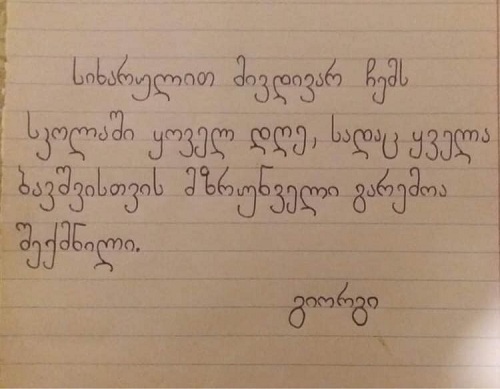 სიხარულით მივდივარ ჩემს
სკოლაში ყოველ დღე, სადაც ყველა
ბავშვისთვის მზრუნველი გარემოა
შექმნილი.
გიორგი